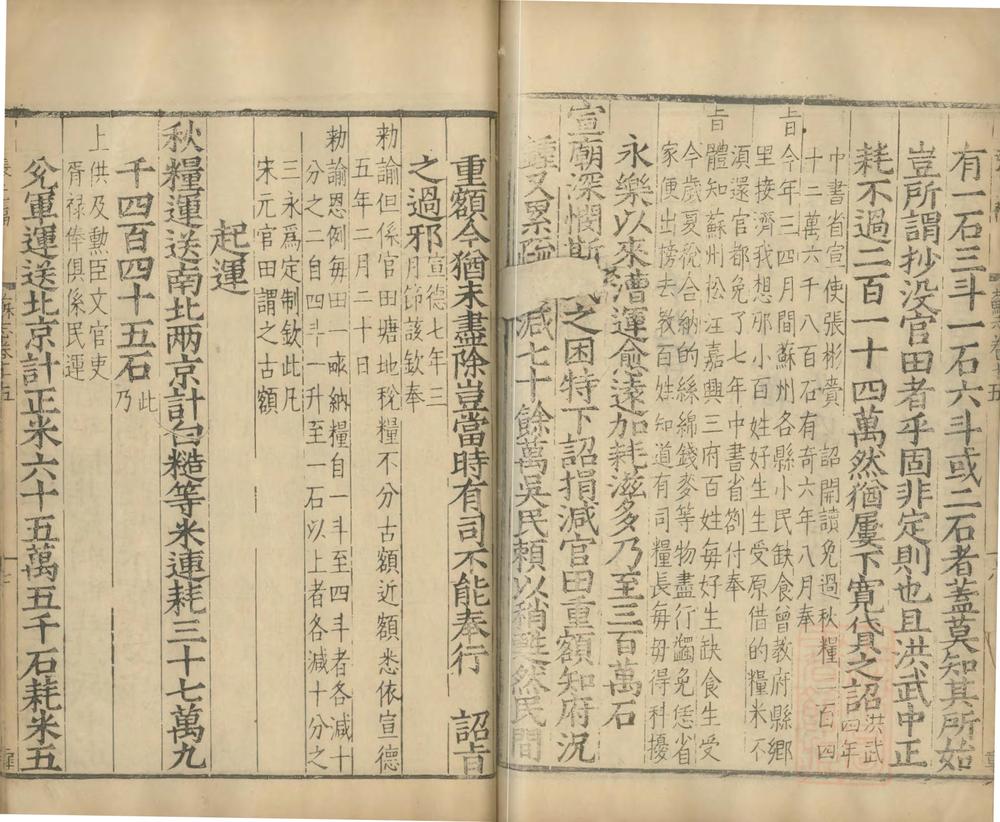 有一石三斗一石六斗或二石者蓋莫知其所始
豈所謂抄没官田者乎固非定則也且洪武中正
耗不過二百一十四萬然猶屢下寬貸之詔洪武四年
中書省宣使張彬賫　詔開讀免過秋糧二百四
十二萬六千八百石有奇六年八月奉
旨今年三四月間蘇州各縣小民缺食曾教府縣鄉
里接濟我想那小百姓好生生受原借的糧米不
湏還官都免了七年中書省劄付奉
旨體知蘇州松江嘉興三府百姓每好生缺食生受
今歲夏稅合納的絲綿錢麥等物盡行蠲免恁省
家便出榜去教百姓知道有司糧長每毋得科擾
永樂以來漕運愈遠加耗滋多乃至三百萬石
宣廟深憫斯之困特下詔捐減官田重額知府況
鍾又累減七十餘萬吳民賴以稍甦然民間
重額今猶未盡除豈當時有司不能奉行　詔旨
之過邪宣德七年三月節該欽奉
勑諭但係官田塘地稅糧不分古額近額悉依宣德
五年二月二十日
勑諭恩例每田一畝納糧自一斗至四斗者各減十
分之二自四斗一升至一石以上者各減十分之
三永爲定制欽此凡
宋元官田謂之古額
起運
秋糧運送南北兩京計白糙等米連耗三十七萬九
千四百四十五石此乃
上供及勳臣文官吏
胥祿俸俱係民運
兊軍運送北京計正米六十五萬五千石耗米五